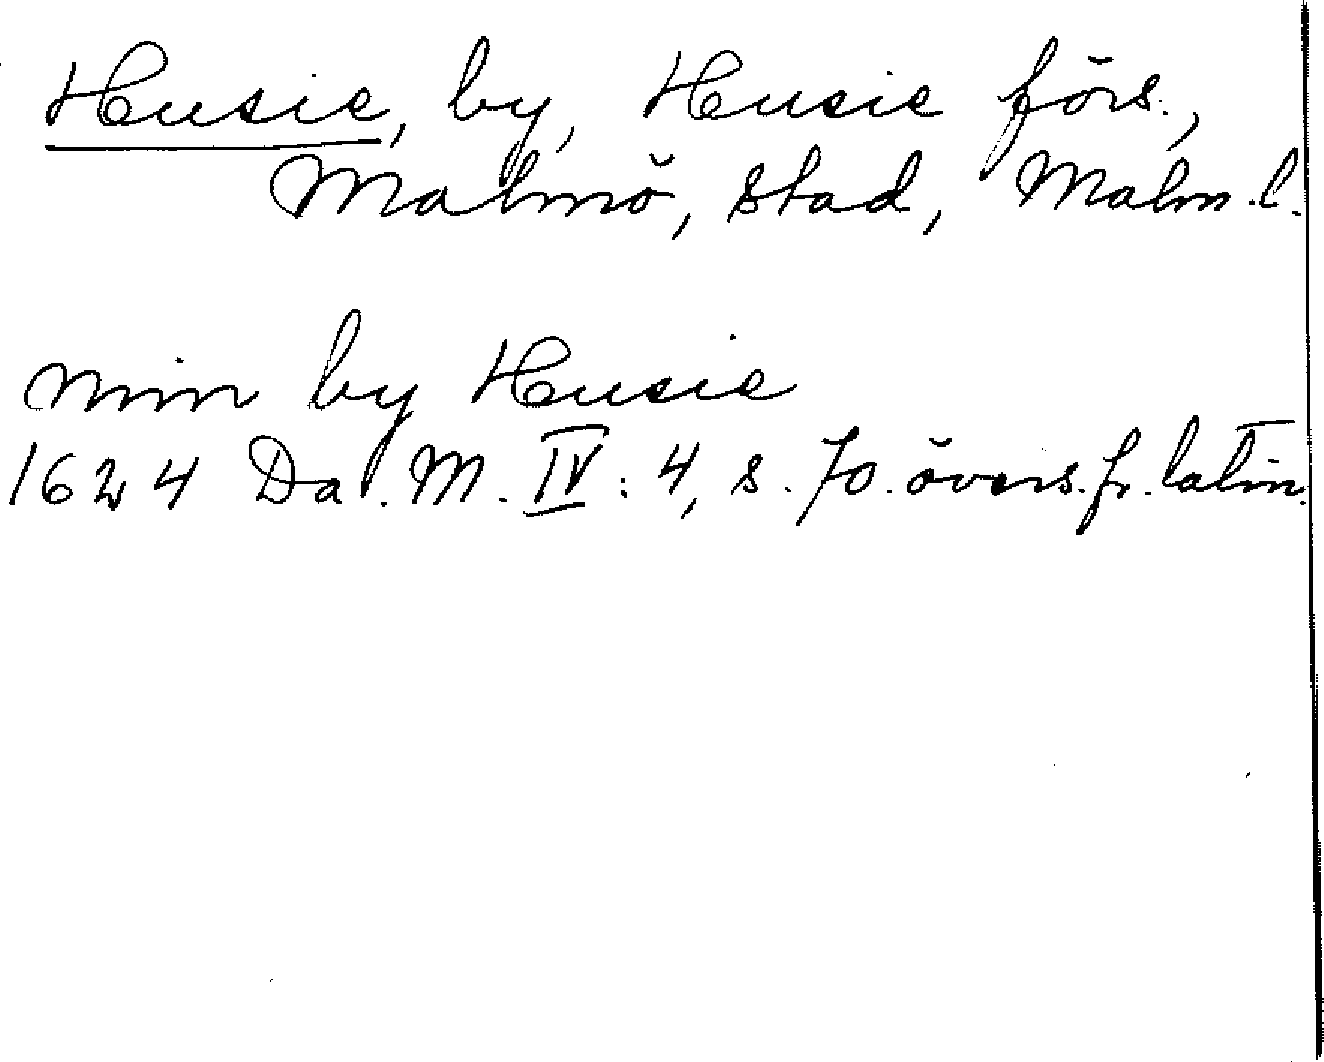 Husie, by, Husie förs.,
Malmö, stad, Malm. l.
min by Husie
1624 Da. M. IV: 4, s. 70. övers. fr. latin.